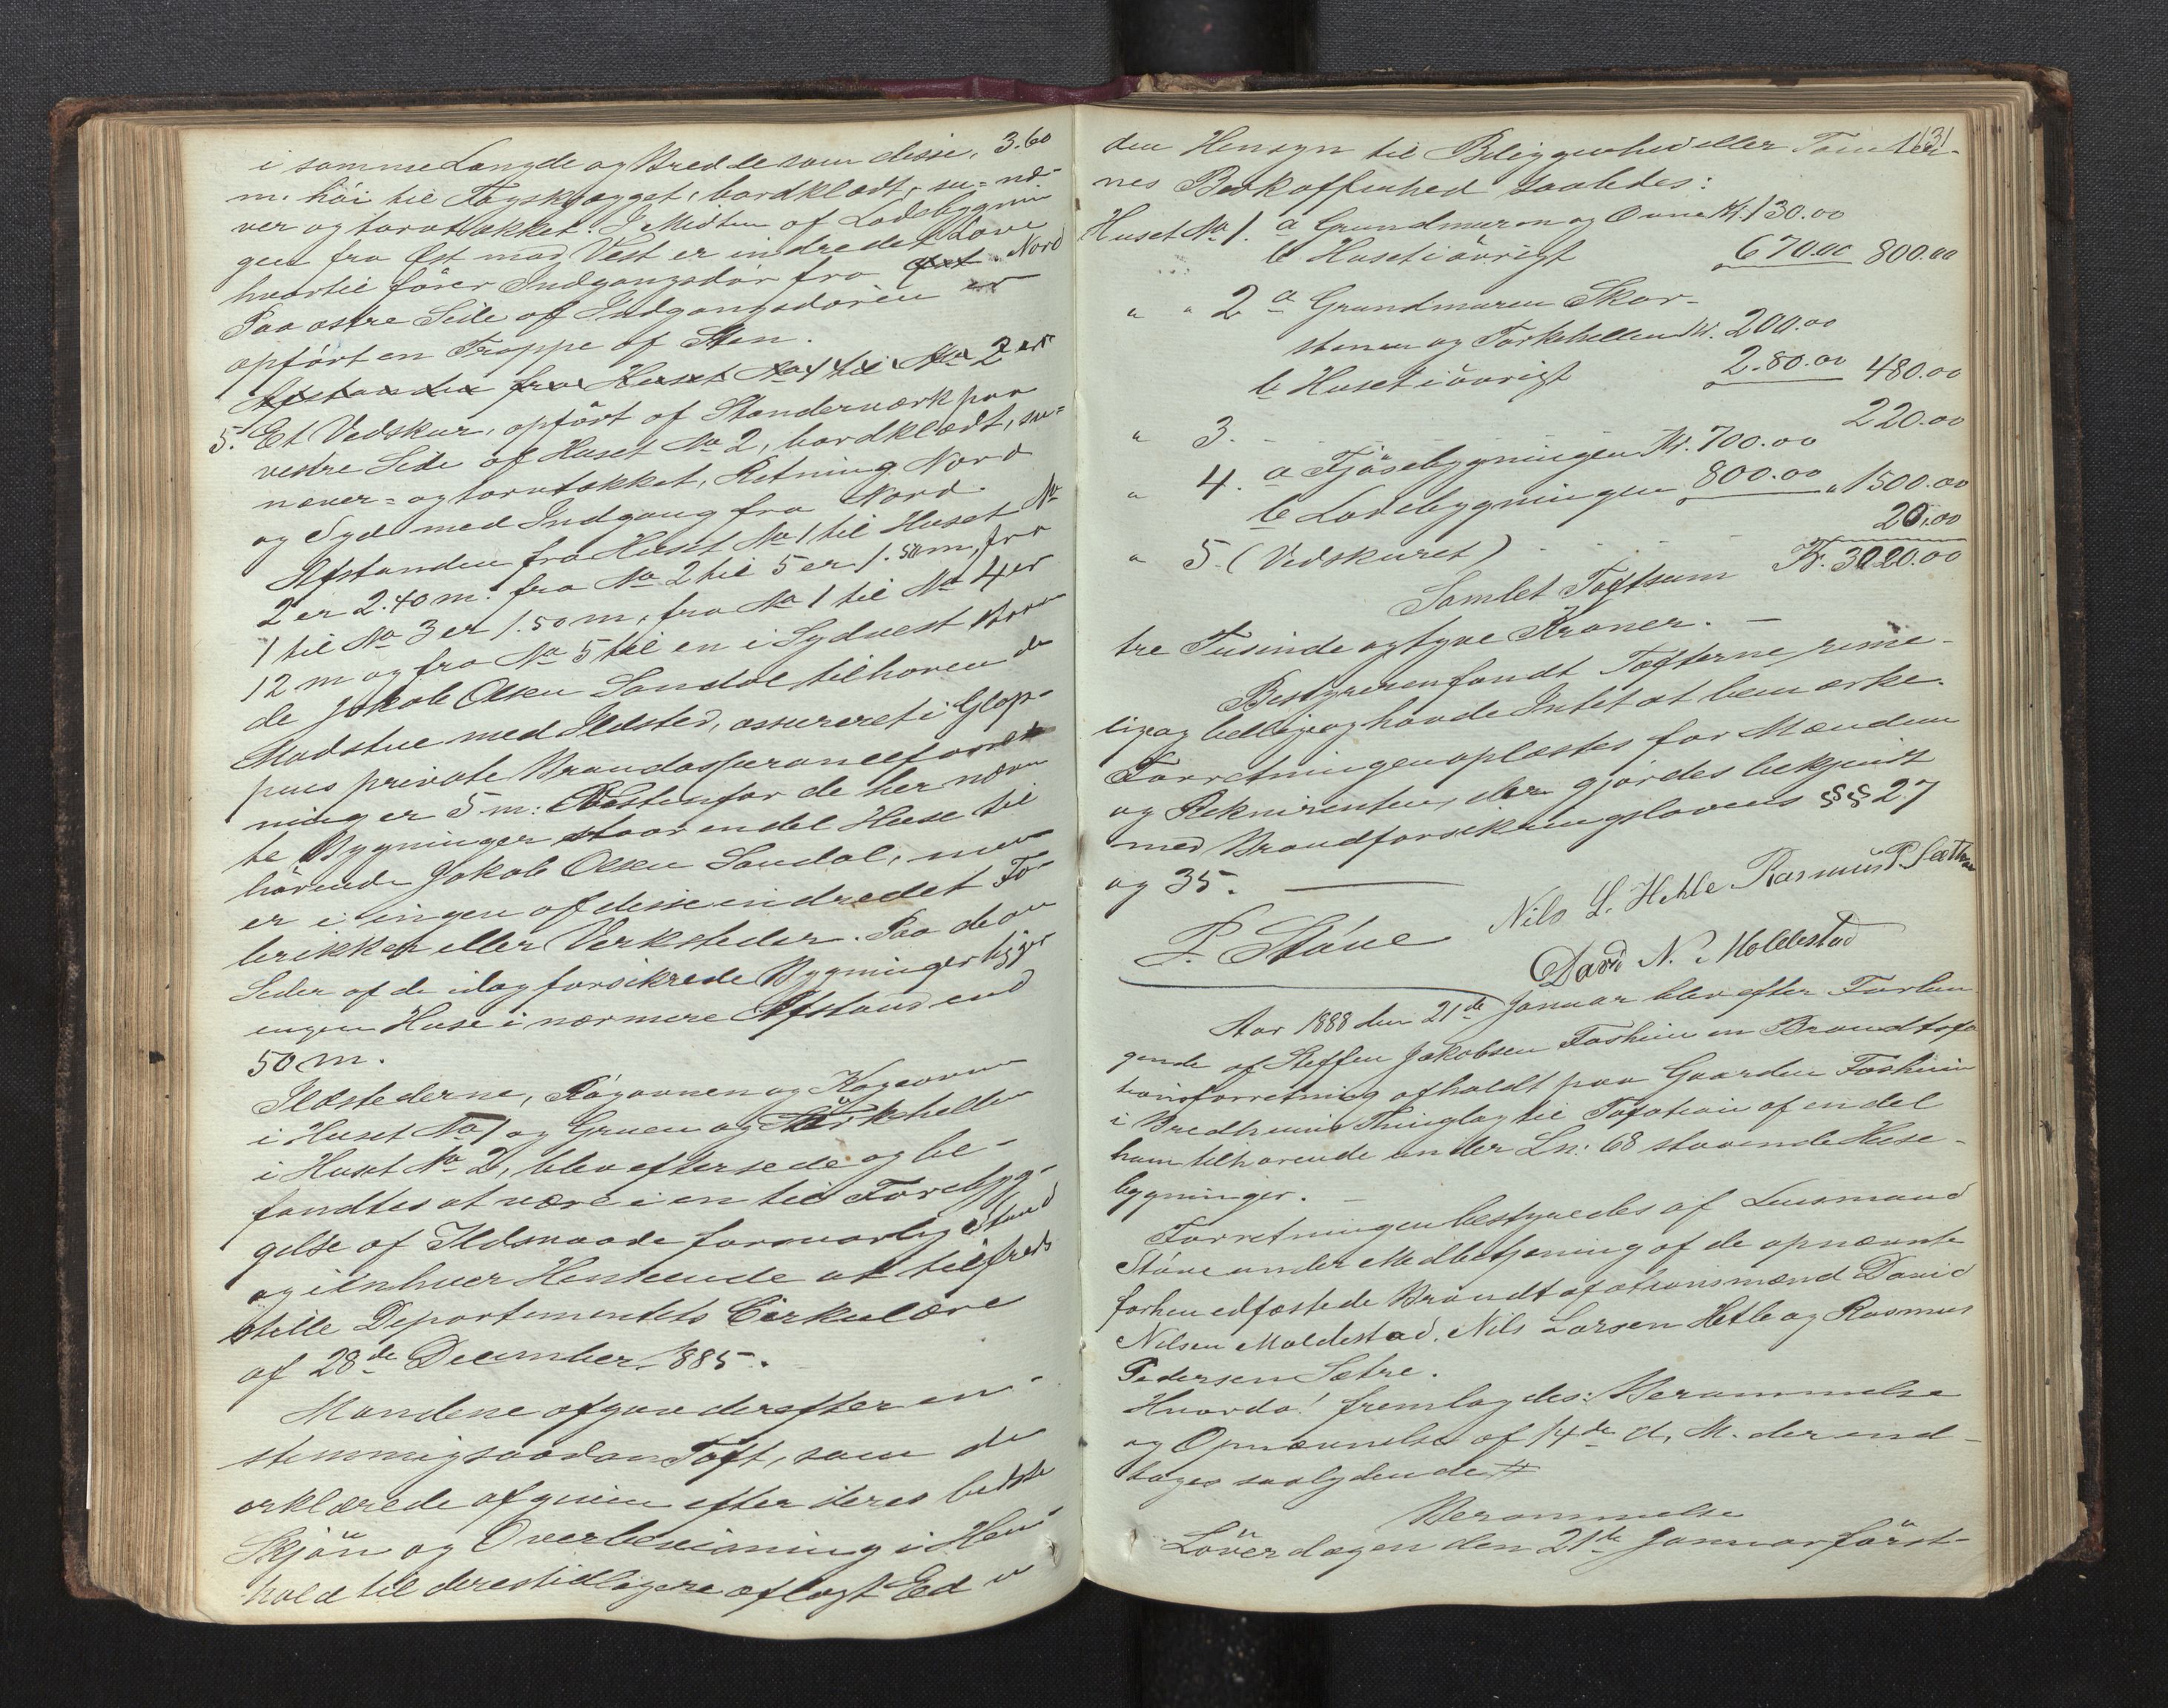 i samme Længde og Bredde som disse, 3.60
m. höi til Tagskjægget, bordklædt, su= næ-
ver og torvtækket. I Midten af Ladebygnin
gen fra Öst mod Vest er indredet Lave
hvortil förer Indgangsdör fra Öst Nord
Paa östre Side af Indgangsdören er
opfört en Trappe af Sten.
Afstanden fra Huset No 1 til No 2 er
5. Et Vedskur, opfört af Stænderværk paa
vestre Side af Huset No 2, bordklædt, su=
næver= og torvtækket, Retning Nord
og Syd med Indgang fra Nord.
Afstanden fra Huset No 1 til Huset No
2 er 2.40 m. fra No 2 til 5 er 1.50 m, fra
1 til No 3 er 1.50 m, fra No 1 til No 4 er
12 m og fra No 5 til en i Sydvest staaen
de Jakob Olsen Sandal tilhörende
Madstue med Ildsted, assureret i Glop-
pens private Brandassuranceforret
ning er 5 m: Östenfor de her nævn
te Bygninger staar endel Huse til
hörende Jakob Olsen Sandal, men
er i ingen af disse indredet Fa-
brikker eller Verksteder. Paa de öv
Sider af de idag forsikrede Bygninger ligger
ingen Huse i nærmere Afstand end
50 m.
Ildstederne, Bagovnen og Kogeovnen
i Huset No 1 og Gruen og Törkehellen
i Huset No 2, blev efterseede og be-
fandtes at være i en til Forebyg-
gelse af Ildsvaade forsvarlig Stand
og i enhver Henseende at tilfreds
stille Departementets Cirkulære
af 28de December 1885.
Mændene afgav derefter en-
stemmig saadan Taxt, som de
erklærede afgiven efter deres bedste
Skjön og Overbevisning i Hen-
hold til deres tidligere aflagt Ed u
131
den Hensyn til Beliggenhed eller Tomter-
nes Beskaffenhed saaledes:
Huset No 1. a Grundmuren og Ovne Kr. 130.00
b Huset i övrigt 670.00 800.00
" " 2 a Grundmuren Skor-
stenen og Törkehellen Kr. 200.00
b Huset i övrigt 280.00 480.00
" 3. - - - - - 220.00
" 4. a Fjösebygningen Kr. 700.00
b Ladebygningen 800.00 " 1500.00
" 5. (Vedskuret) - - - - 20.00
Samlet Taxtsum Kr. 3020.00
tre Tusinde og tyve Kroner. —
Bestyreren fandt Taxterne rime-
lige og billige og havde Intet at bemærke.
Forretningen oplæstes for Mændene
og Rekvirenten, der gjördes bekjendt
med Brandforsikringslovens §§ 27
og 35. —
P. Stöve Nils L. Hetle Rasmus P. Sætre
David N. Moldestad
Aar 1888 den 21de Januar blev efter Forlan
gende af Steffen Jakobsen Fosheim en Brandtaxa
tionsforretning afholdt paa Gaarden Fosheim
i Bredheims Thinglag til Taxation af endel
ham tilhörende under Ln: 68 staaende Huse-
bygninger. —
Forretningen bestyredes af Lensmand
Stöve under Medbetjening af de opnævnte
forhen edfæstede Brandtaxationsmænd David
Nilsen Moldestad, Nils Larsen Hetle og Rasmus
Pedersen Sætre.
Hvorda! fremlagdes: Berammelse
og Opnævnelse af 14de d. M. der ind-
tages saalydende #
Berammelse
Löverdagen den 21de Januar först-